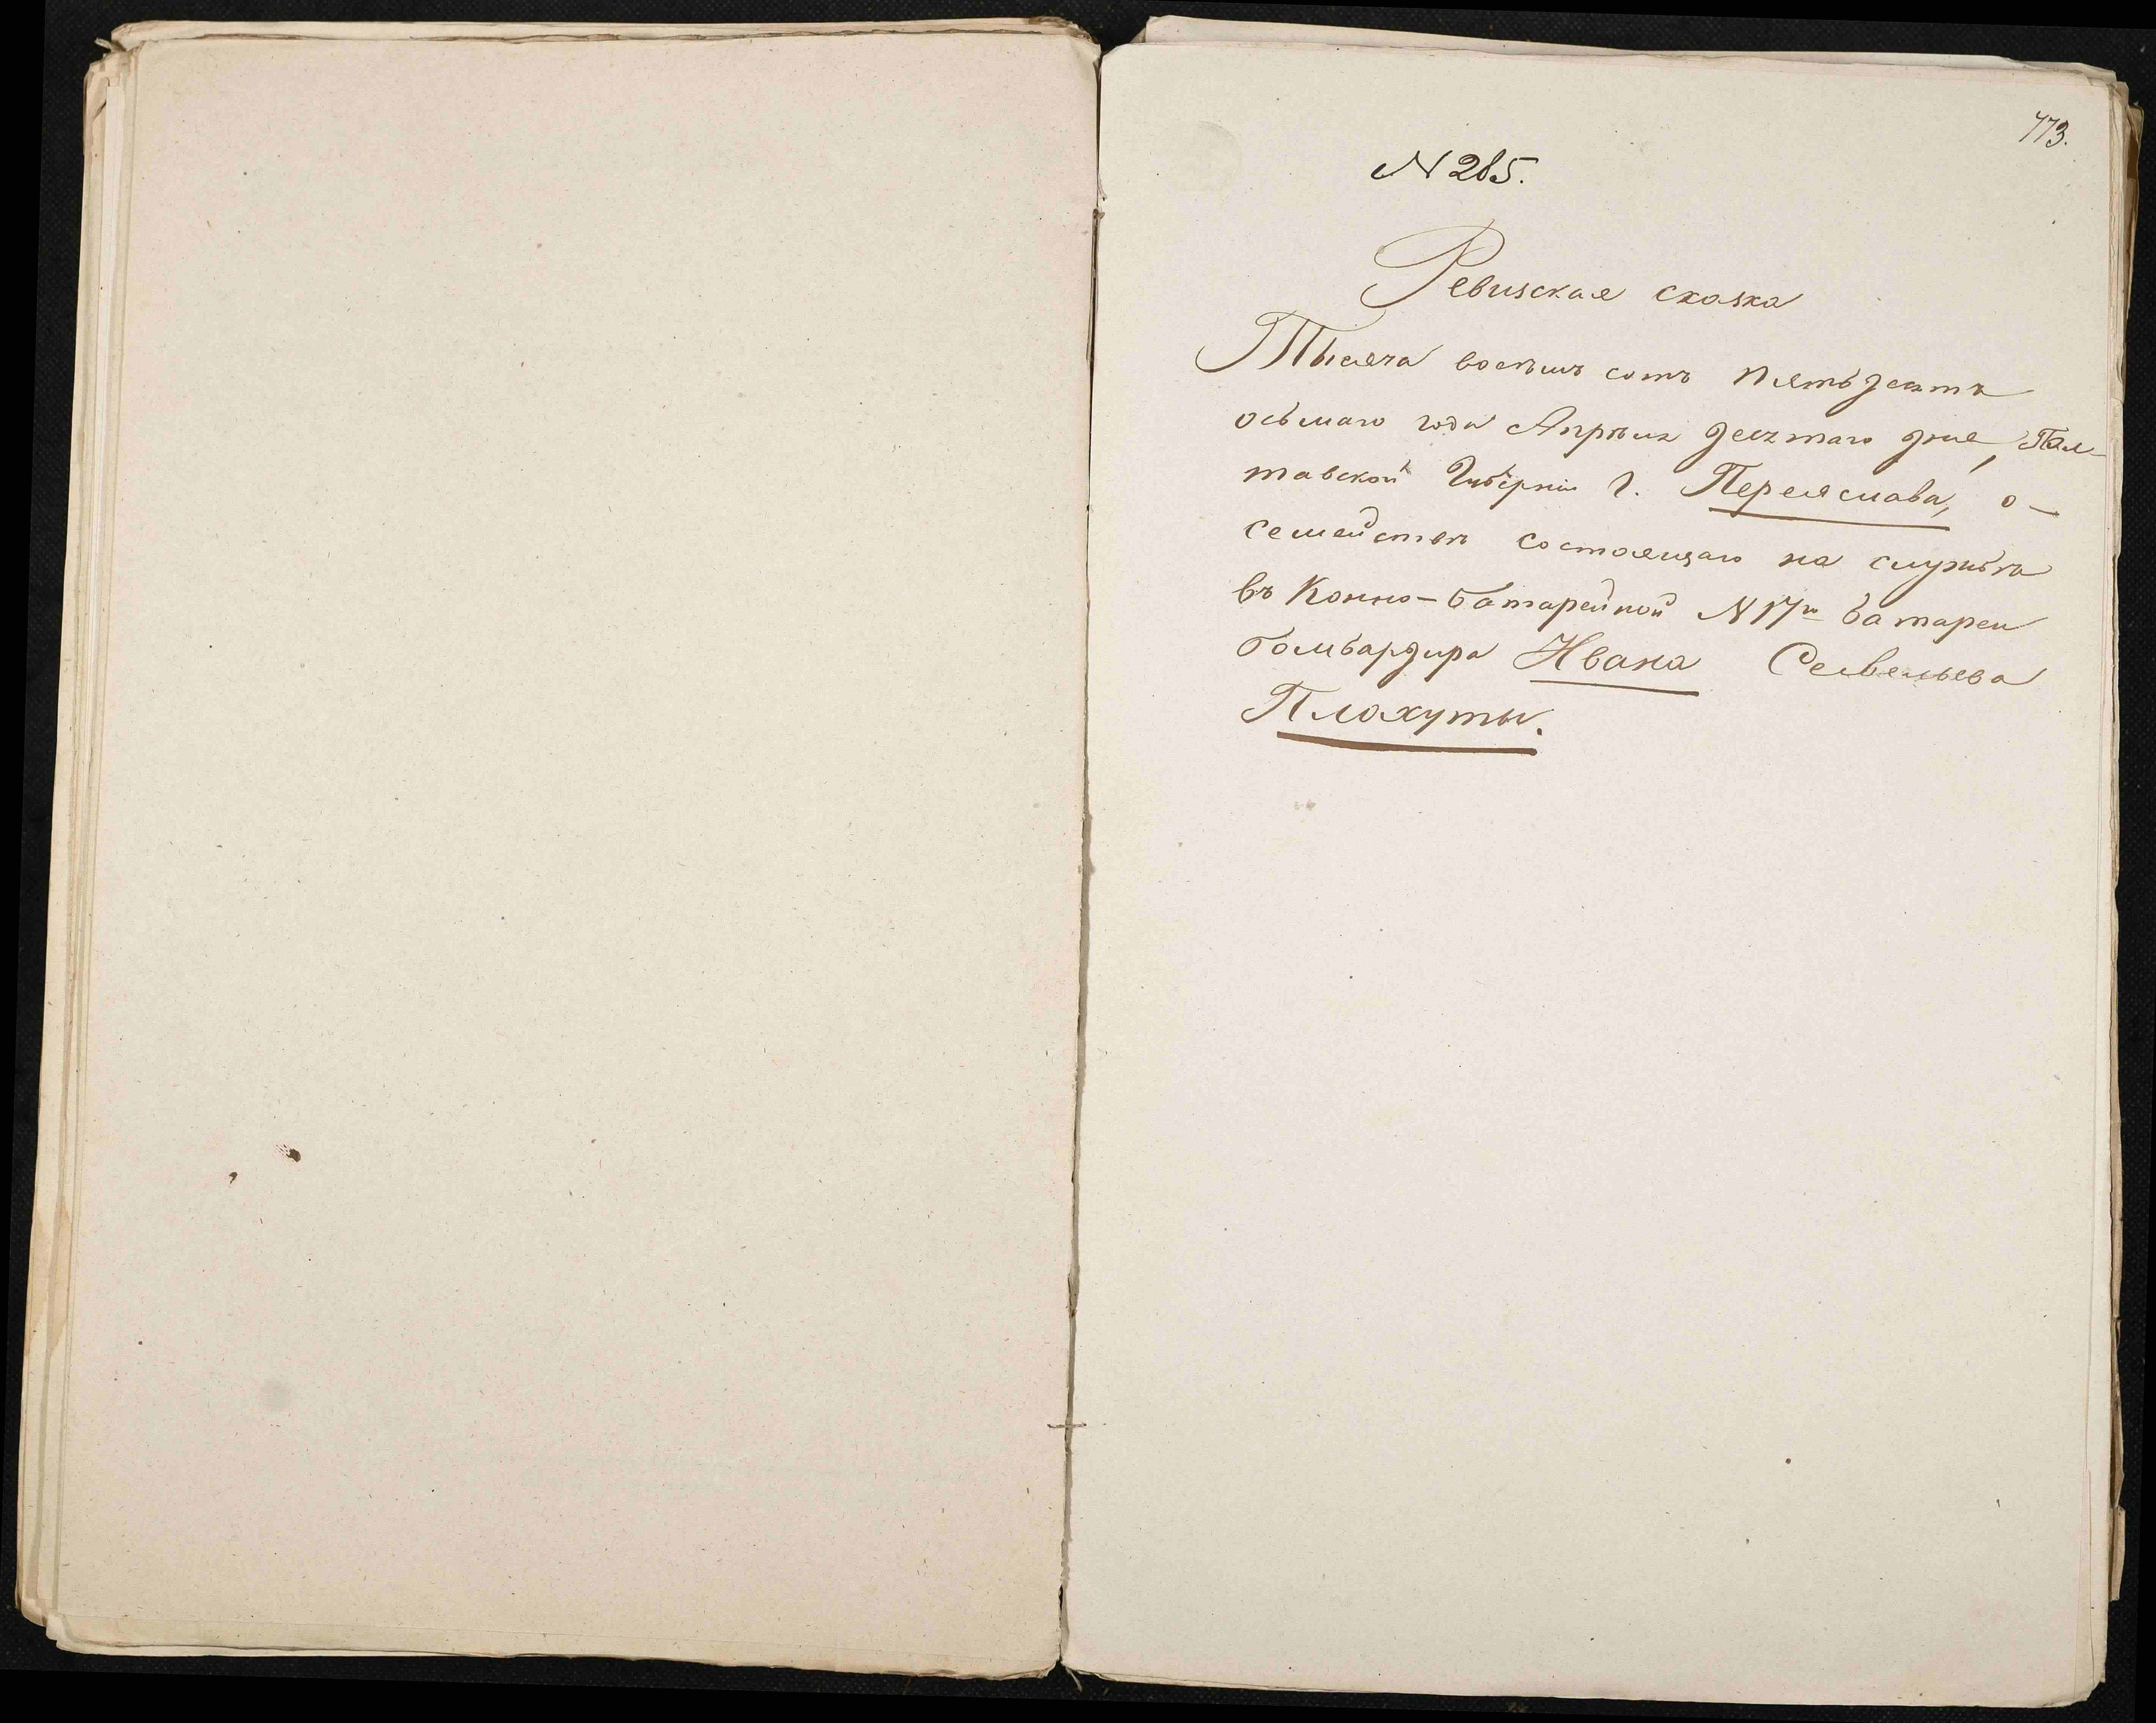 773.
N 285.
Ревизская сказка
Тысяча восемь сотъ пятьдесятъ
осьмаго года Апрѣля десятаго дня, Пол-
тавской Губерніи г. Переяслава, о
семействѣ состоящаго на службѣ
въ Конно-батарейной N 17й батареи
бомбардира Ивана Савельева
Плахуты.